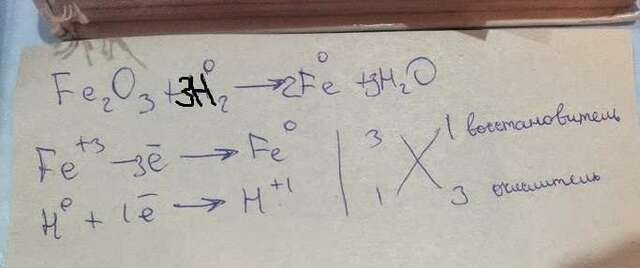 Fe₂O₃ + 3H₂⁰ → 2Fe⁰ + 3H₂O
Fe⁺³ – 3ē → Fe⁰ | 3 1 восстановитель
H⁰ + 1ē → H⁺¹ | 1 3 окислитель